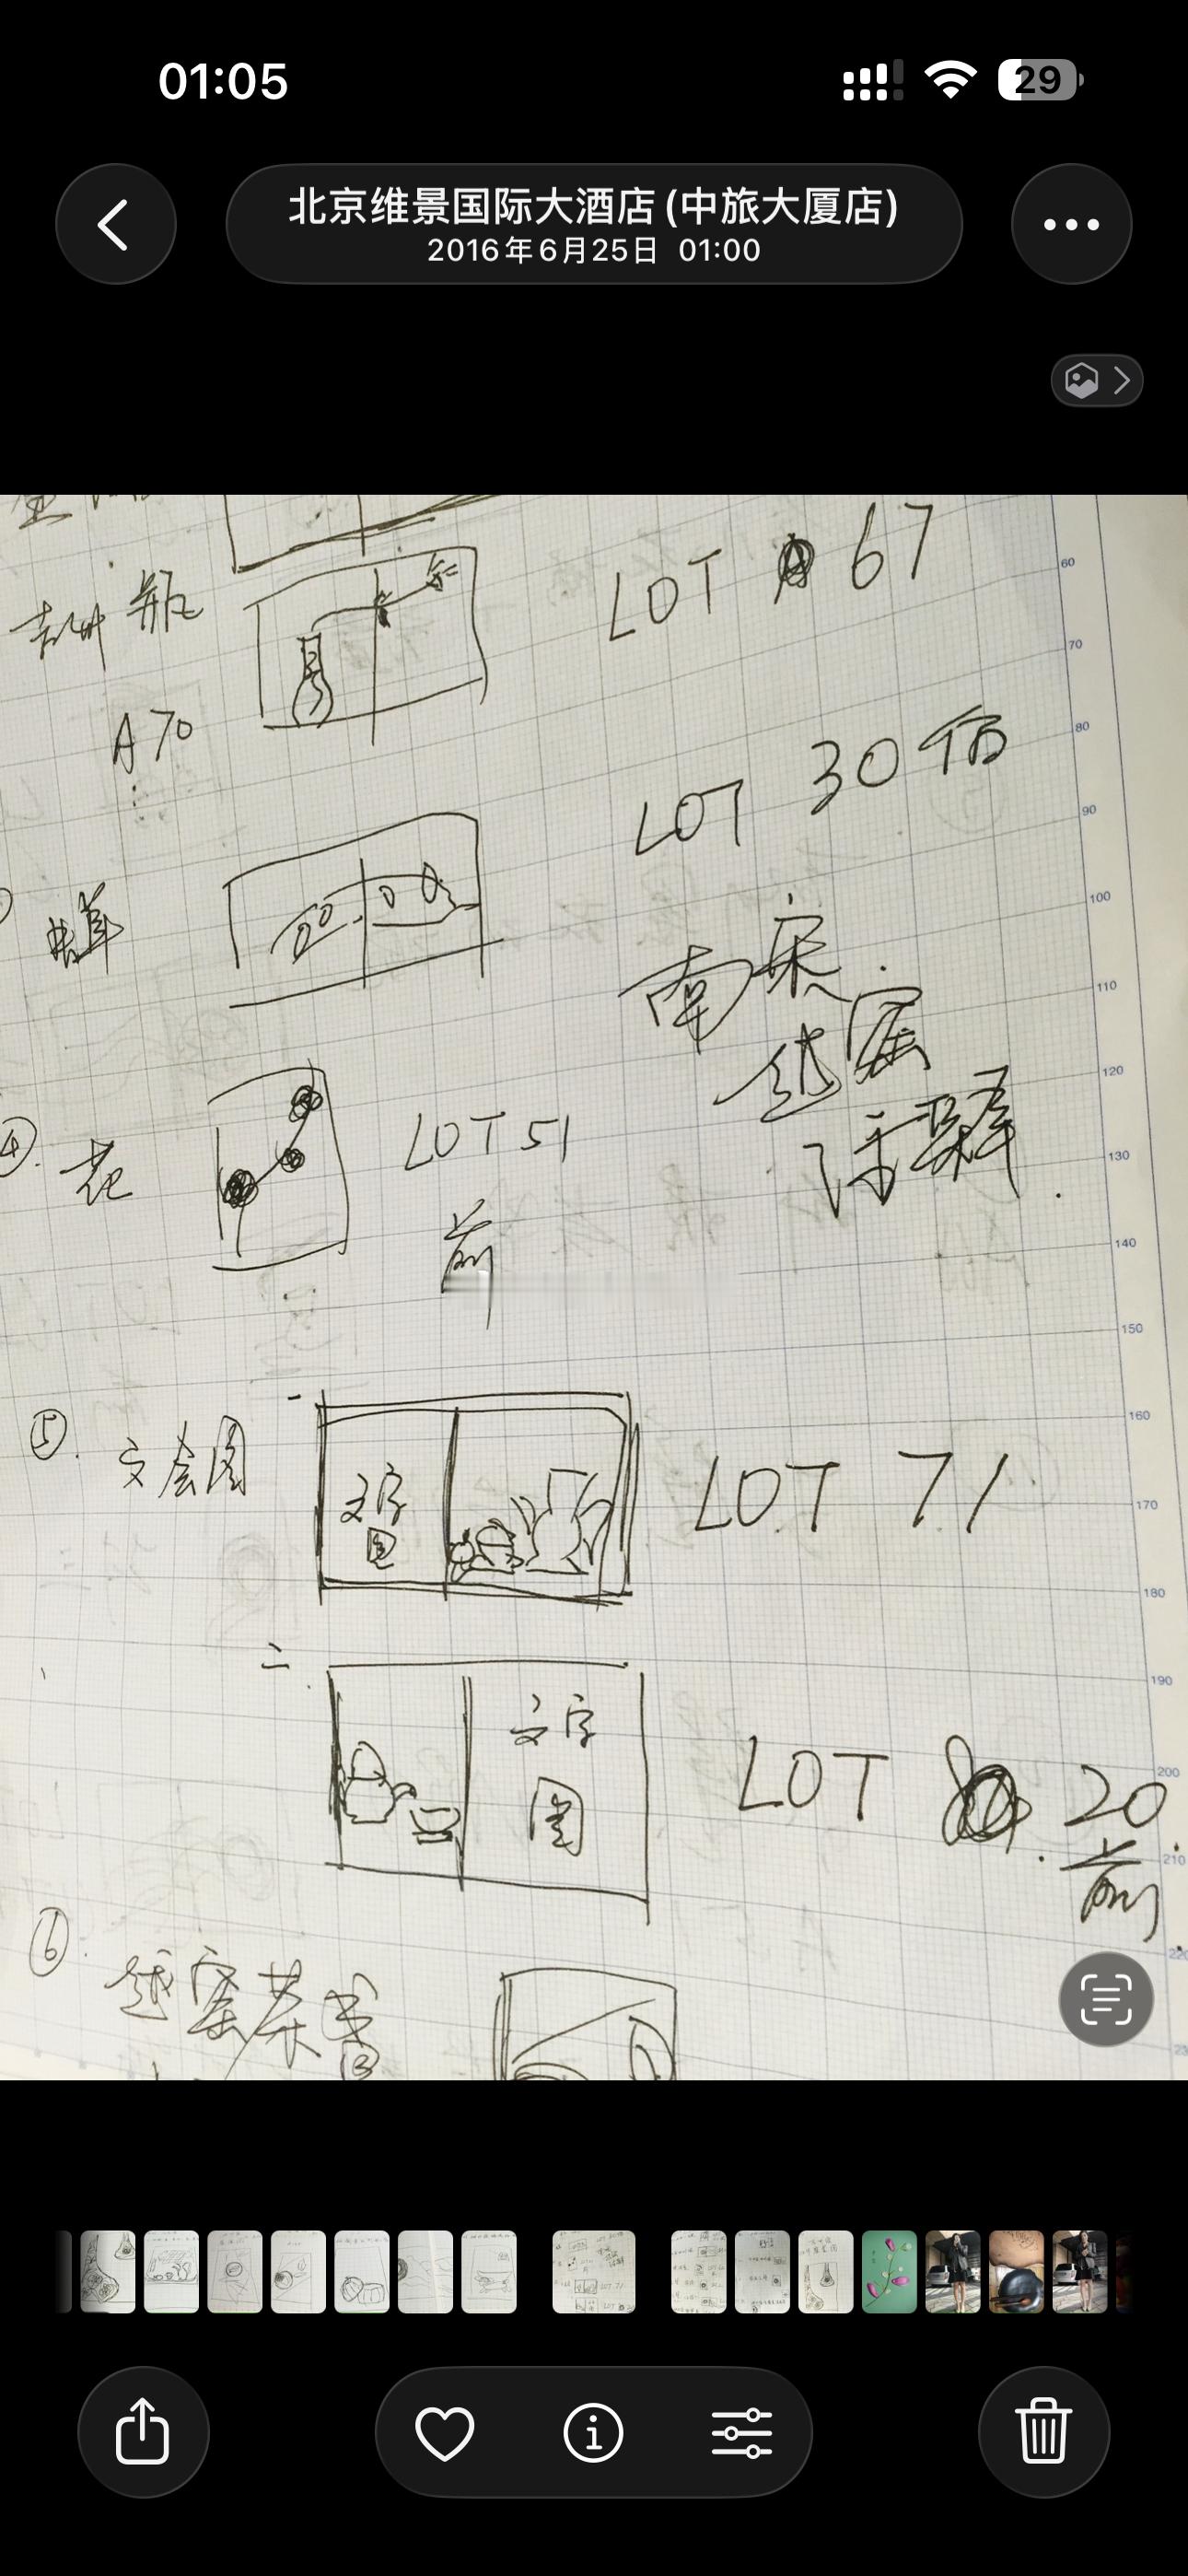 01:05
29
北京维景国际大酒店(中旅大厦店)
2016年6月25日 01:00
瓶
LOT 67
A 70
LOT 30
蝉
南宋
越窑
④. 花
LOT 51
前
⑤. 文会图
一
文字
图
LOT 71
二
文字
图
LOT 20
前
⑥. 越窑茶书
60
70
80
90
100
110
120
130
140
150
160
170
180
190
200
210
220